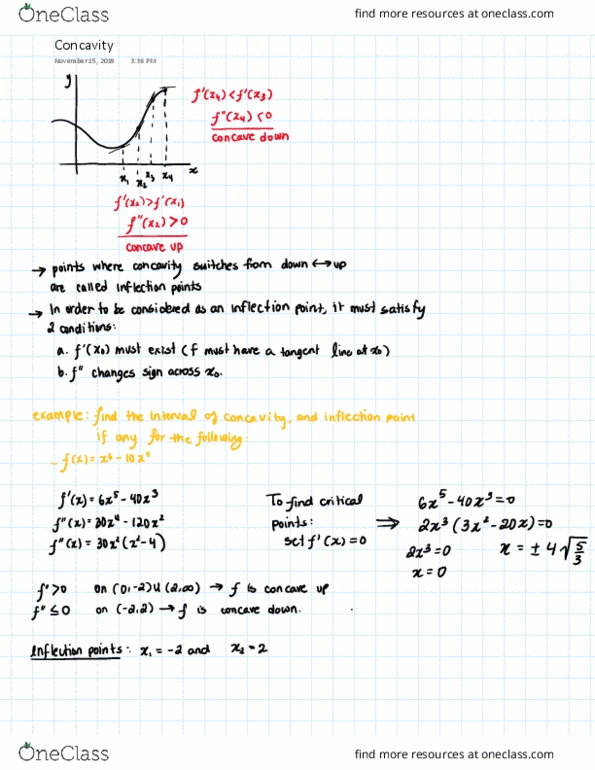 OneClass
find more resources at oneclass.com
Concavity
November 15, 2019 3:36 PM
y
x
x₁ x₂ x₃ x₄
f'(x₄) < f'(x₃)
f"(x₄) < 0
concave down
f'(x₂) > f'(x₁)
f"(x₂) > 0
concave up
→ points where concavity switches from down ↔ up
are called inflection points
→ In order to be considered as an inflection point, it must satisfy
2 conditions:
a. f'(x₀) must exist (f must have a tangent line at x₀)
b. f" changes sign across x₀.
example: find the interval of concavity, and inflection point
if any for the following:
- f(x) = x⁶ - 10x⁴
f'(x) = 6x⁵ - 40x³
f"(x) = 30x⁴ - 120x²
f"(x) = 30x²(x² - 4)
To find critical
points:
set f'(x) = 0
⇒
6x⁵ - 40x³ = 0
2x³(3x² - 20x) = 0
2x³ = 0
x = 0
x = ± 4√5/3
f" > 0 on (0, -2) U (2, ∞) → f is concave up
f" ≤ 0 on (-2, 2) → f is concave down.
Inflection points: x₁ = -2 and x₂ = 2
OneClass
find more resources at oneclass.com